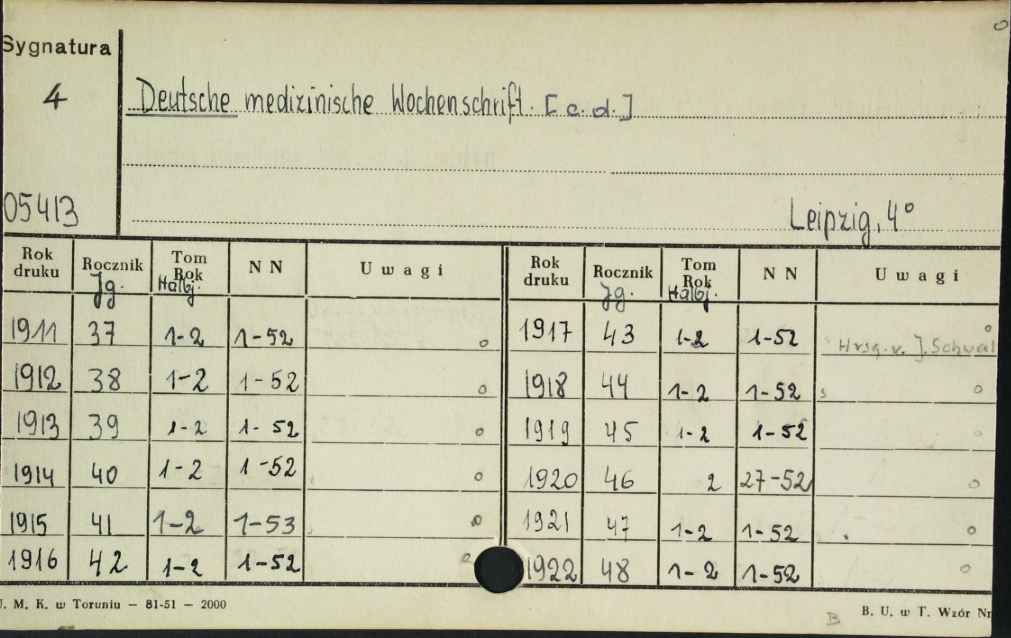 Sygnatura
4
Deutsche medizinische Wochenschrift. [c.d.]
05413
Leipzig, 4°
Rok druku Rocznik Jg. Tom Rok Halbj. NN Uwagi
1911 37 1-2 1-52
1912 38 1-2 1-52
1913 39 1-2 1-52
1914 40 1-2 1-52
1915 41 1-2 1-53
1916 42 1-2 1-52
Rok druku Rocznik Jg. Tom Rok Halbj. NN Uwagi
1917 43 1-2 1-52 Hrsg. v. J. Schwal
1918 44 1-2 1-52
1919 45 1-2 1-52
1920 46 2 27-52
1921 47 1-2 1-52
1922 48 1-2 1-52
U. M. K. w Toruniu — 81-51 — 2000
B
B. U. w T. Wzór Nr